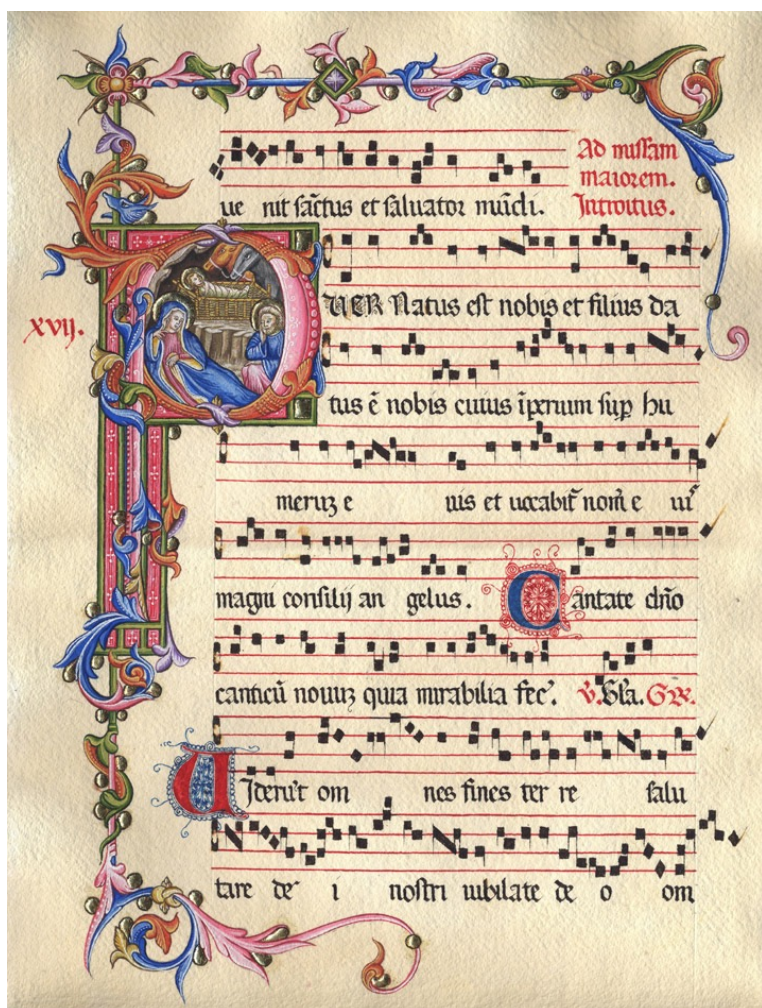 ue nit sāctus et saluator mūdi.
Ad missam
maiorem.
Introitus.
xvij.
PUER Natus est nobis et filius da
tus ē nobis cuius īperium sup hu
meruʒ e ius et uocabit̄ nom̄ e iu᷒
magni consilij an gelus. Cantate dn̄o
canticū nouuʒ quia mirabilia fec̄. v̄. Gl̄a. Gr̄.
Uiderūt om nes fines ter re salu
tare de i nostri iubilate de o om